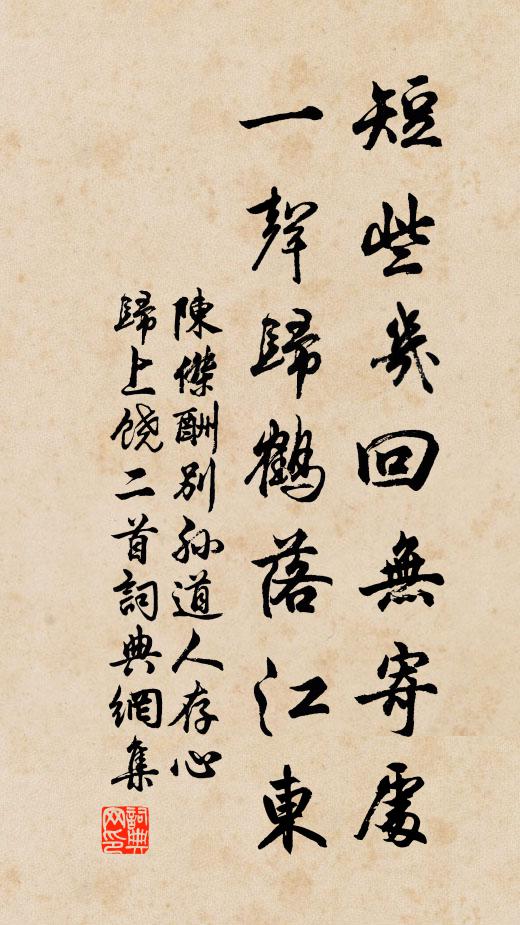 短些幾回無寄處
一聲歸鶴落江東
陳傑酬別孫道人存心
歸上饒二首詞典網集
詞典网印